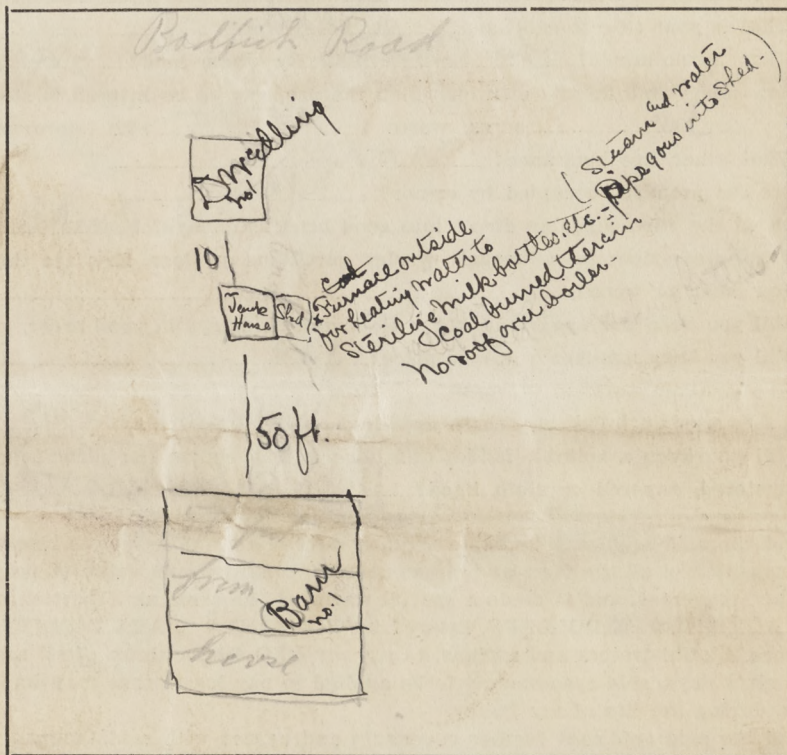 Road
Dwelling
no. 1
10
House
Shed
Furnace outside
for heating water to
Sterilize milk bottles, etc. -
Coal burned therein
No roof over boiler -
(Steam and water
pipe goes into Shed.)
50 ft.
from
Barn
no. 1